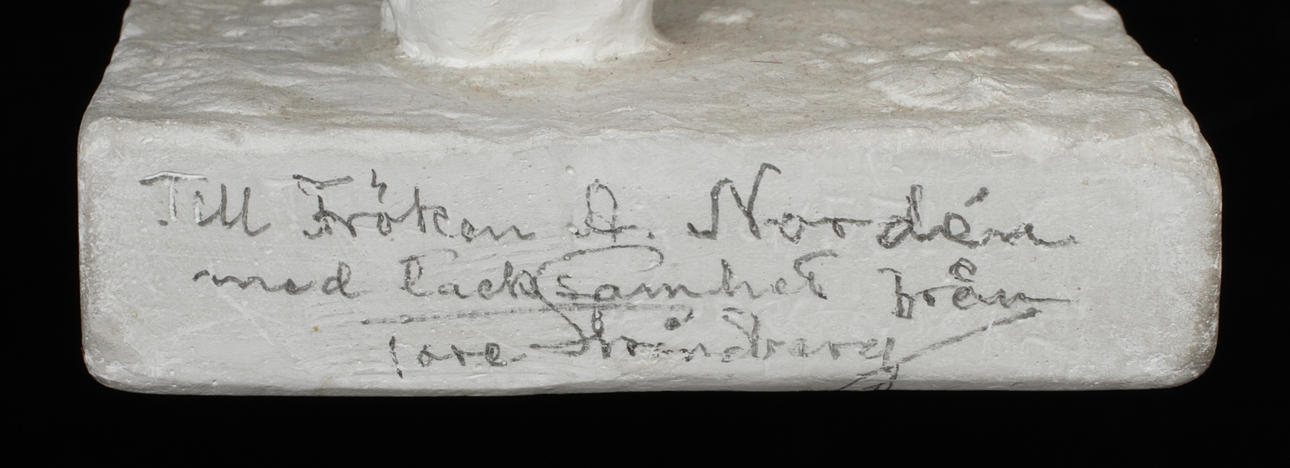 Till Fröken A. Nordén
med tacksamhet från
Tore Strindberg